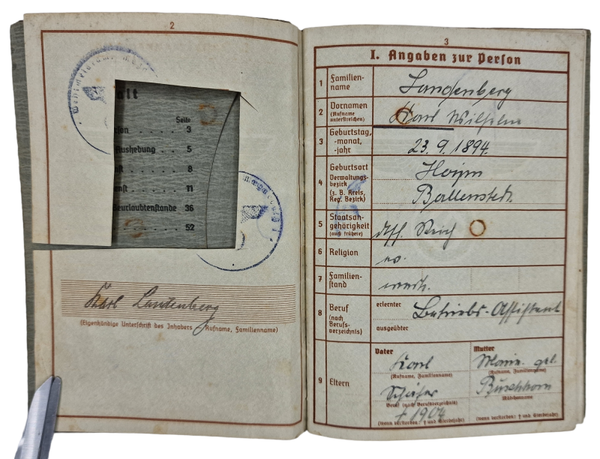 2
Seite
3
5
8
11
36
52
Karl Landenberg
(Eigenhändige Unterschrift des Inhabers – Rufname, Familienname)
3
I. Angaben zur Person
1 Familien-
name
Landenberg
2 Vornamen
(Rufname
unterstreichen)
Karl Wilhelm
3 Geburtstag,
-monat,
-jahr
23.9.1894.
4 Geburtsort
Verwaltungs-
bezirk
(z. B. Kreis,
Reg. Bezirk)
Hoym
Ballenstedt.
5 Staatsan-
gehörigkeit
(auch frühere)
Reich
6 Religion
ev.
7 Familien-
stand
verh.
8 Beruf
(nach
Berufs-
verzeichnis)
erlernter
Betriebs-Assistent
ausgeübter
9 Eltern
Vater
Karl
(Rufname, Familienname)
Schäfer
Beruf (nach Berufsverzeichnis)
† 1904
(wenn verstorben: † und Sterbejahr)
Mutter
Marie geb.
(Rufname, Familienname)
Mädchenname
(wenn verstorben: † und Sterbejahr)